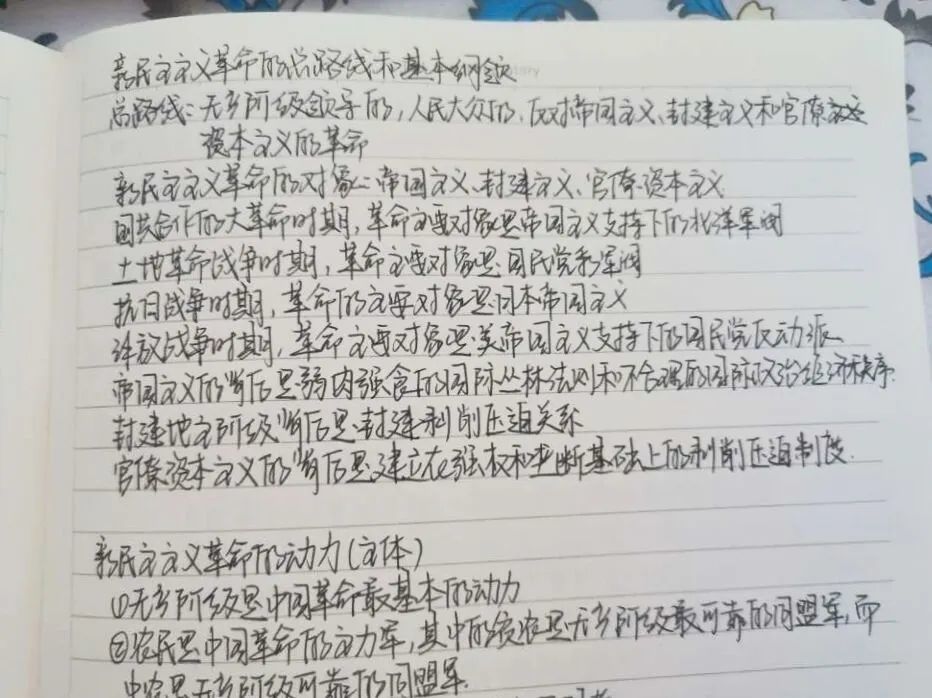 新民主主义革命的总路线和基本纲领
总路线:无产阶级领导的,人民大众的,反对帝国主义、封建主义和官僚
资本主义的革命
新民主主义革命的对象:帝国主义、封建主义、官僚资本主义
国共合作的大革命时期,革命主要对象是帝国主义支持下的北洋军阀
土地革命战争时期,革命主要对象是国民党新军阀
抗日战争时期,革命的主要对象是日本帝国主义
解放战争时期,革命主要对象是美帝国主义支持下的国民党反动派
帝国主义的背后是弱肉强食的国际丛林法则和不合理的国际政治经济秩序.
封建地主阶级背后是封建剥削压迫关系
官僚资本主义的背后是建立在强权和垄断基础上的剥削压迫制度.
新民主主义革命的动力(主体)
①无产阶级是中国革命最基本的动力
②农民是中国革命的主力军,其中的贫农是无产阶级最可靠的同盟军,而
中农是无产阶级可靠的同盟军.